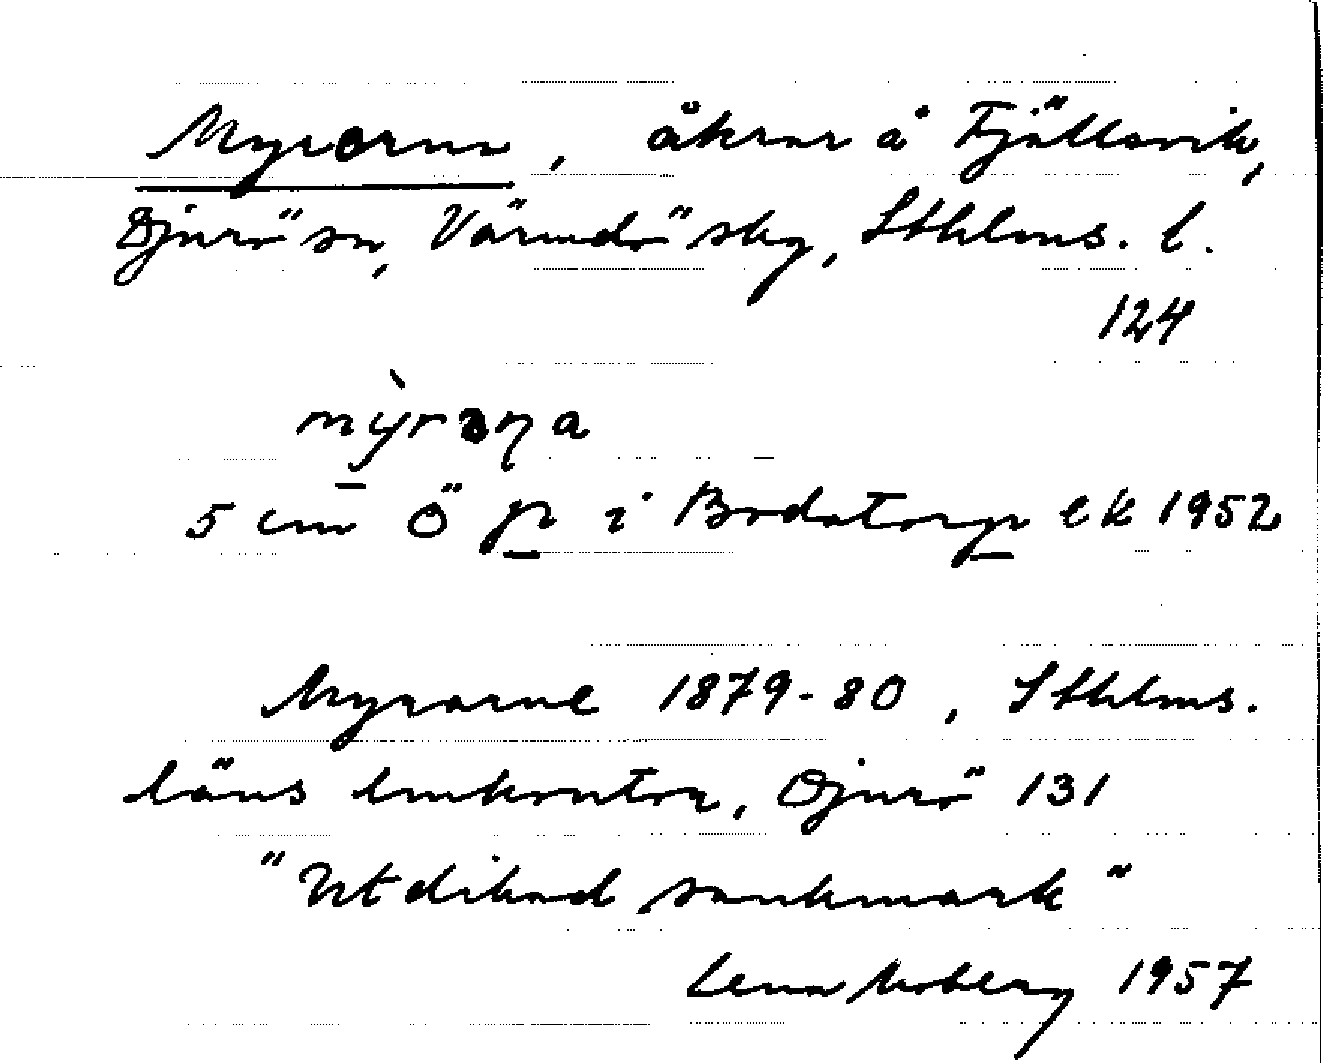 Myrorna, åkrar å Fjällsvik,
Djurö sn, Värmdö skg, Sthlms. l.
124
mỳrɷṇa
5 cm Ö p i Bodatorp ek 1952
Myrorne 1879-80, Sthlms.
läns lmkontor, Djurö 131
"Utdikad sankmark"
Lena Moberg 1957